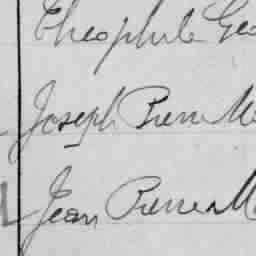 Theophile Geo
Joseph Pierre M
Jean Pierre M